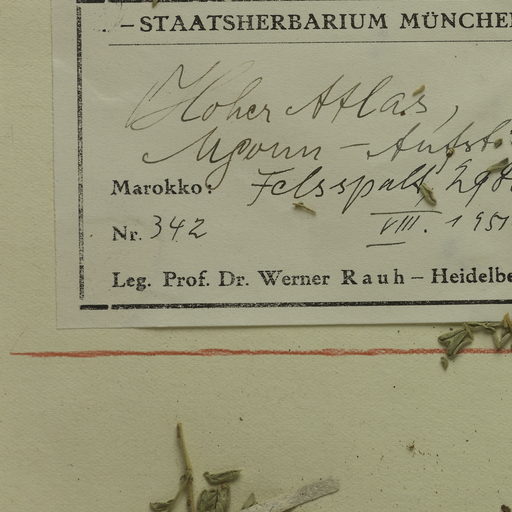 – STAATSHERBARIUM MÜNCHE
Hoher Atlas,
Mgoun – Aufst
Marokko: Felsspalt, 29
Nr. 342 VIII. 195
Leg. Prof. Dr. Werner Rauh – Heidelbe